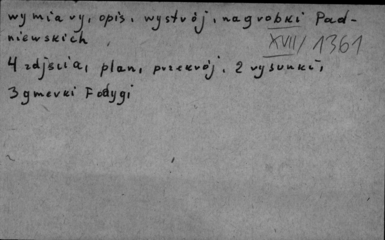 wymiary, opis, wystrój, nagrobki Pad-
niewskich
XVII/1361
4 zdjścia, plan, przekrój, 2 rysunki,
3 gmerki Fodygi